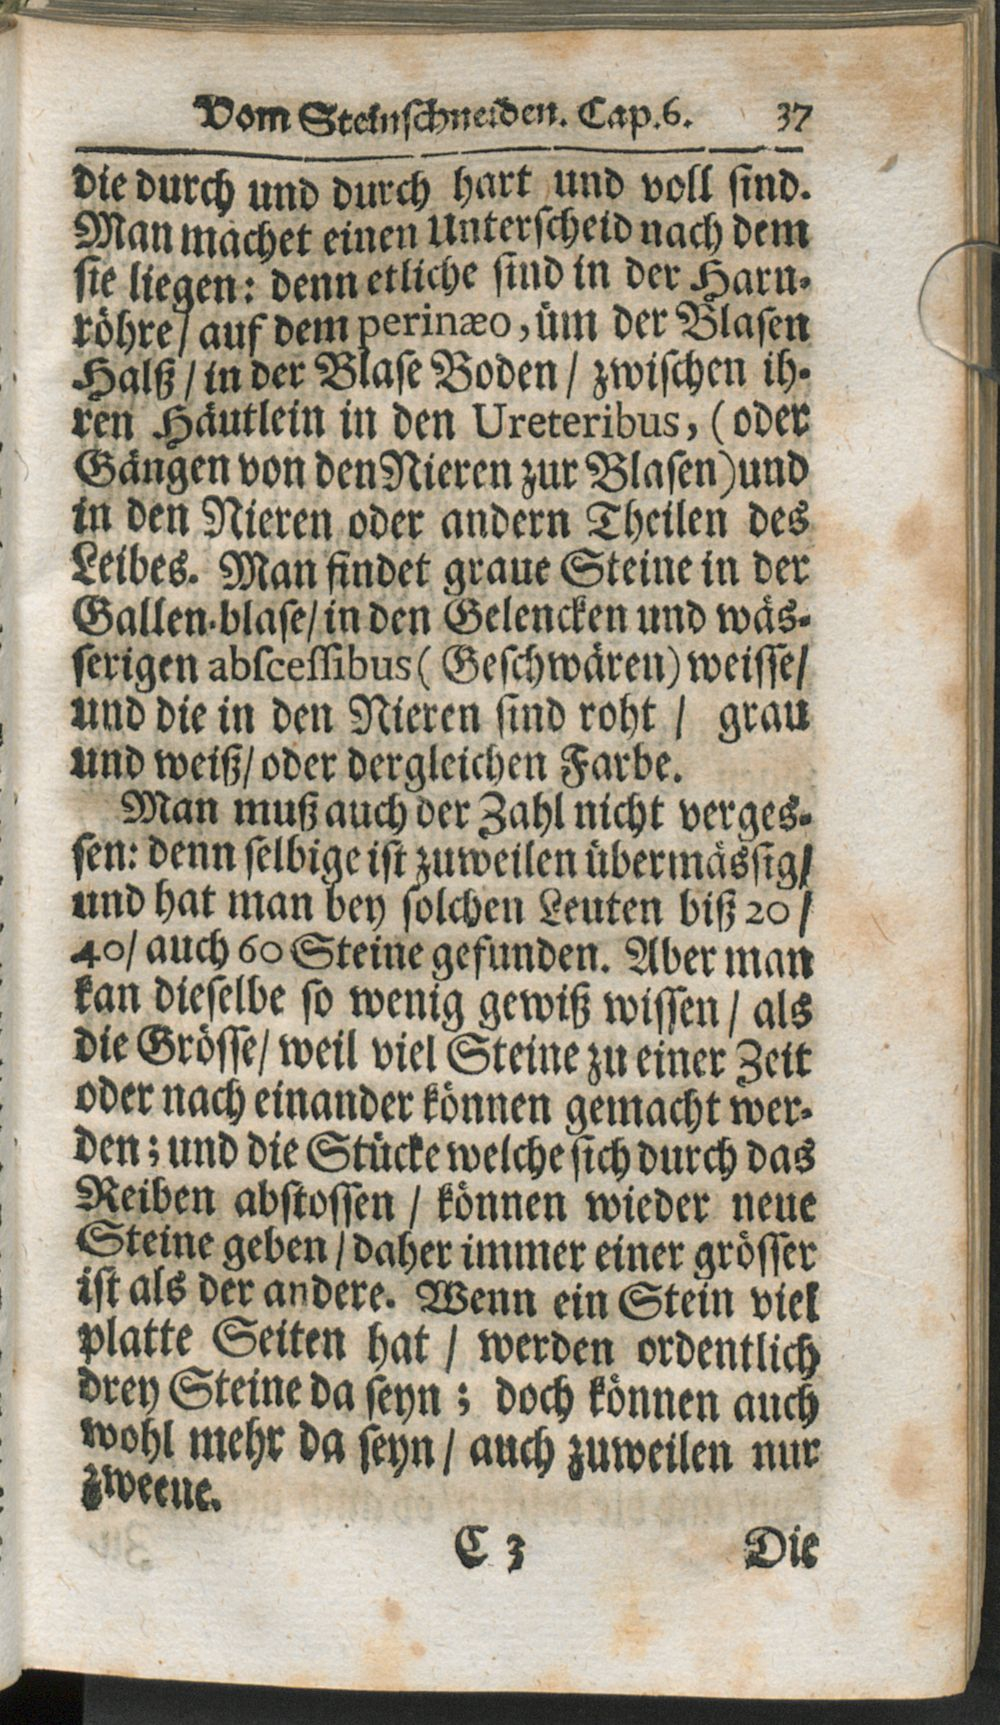 Vom Steinschneiden. Cap. 6. 37
die durch und durch hart und voll sind.
Man machet einen Unterscheid nach dem
sie liegen: denn etliche sind in der Harn-
röhre/ auf dem perinæo, üm der Blasen
Halß/ in der Blase Boden/ zwischen ih-
ren Häutlein in den Ureteribus, (oder
Gängen von den Nieren zur Blasen) und
in den Nieren oder andern Theilen des
Leibes. Man findet graue Steine in der
Gallen-blase/ in den Gelencken und wäs-
serigen abscessibus (Geschwären) weisse/
und die in den Nieren sind roht / grau
und weiß/ oder dergleichen Farbe.
Man muß auch der Zahl nicht verges-
sen: denn selbige ist zuweilen übermässig/
und hat man bey solchen Leuten biß 20/
40/ auch 60 Steine gefunden. Aber man
kan dieselbe so wenig gewiß wissen/ als
die Grösse/ weil viel Steine zu einer Zeit
oder nach einander können gemacht wer-
den; und die Stücke welche sich durch das
Reiben abstossen / können wieder neue
Steine geben / daher immer einer grösser
ist als der andere. Wenn ein Stein viel
platte Seiten hat / werden ordentlich
drey Steine da seyn; doch können auch
wohl mehr da seyn/ auch zuweilen nur
zweene.
C 3 Die